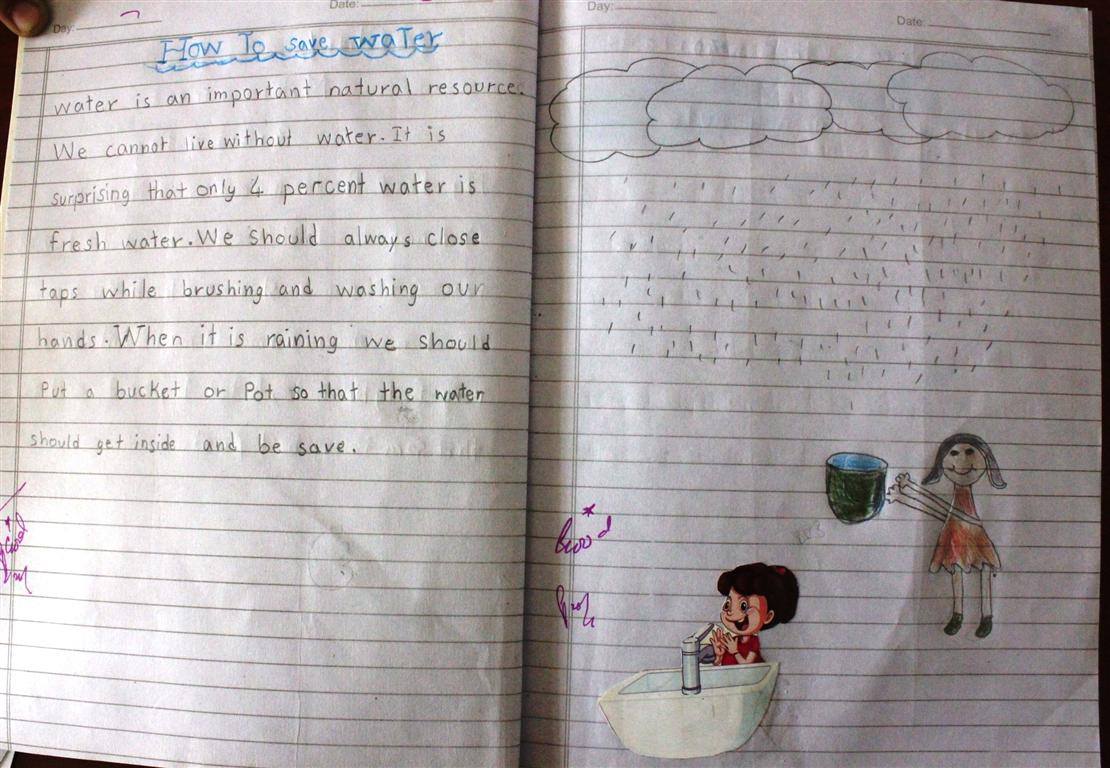 Day:
Date:
How To save water
water is an important natural resource.
We cannot live without water. It is
surprising that only 4 percent water is
fresh water. We should always close
taps while brushing and washing our
hands. When it is raining we should
Put a bucket or Pot so that the water
should get inside and be save.
Day:
Date:
Good